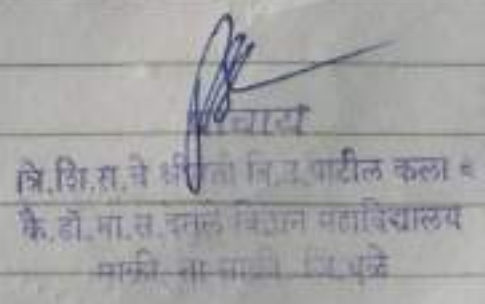 प्राचार्य
वि.शि.स.चे श्रीमती वि.उ.पाटील कला व
कै.डॉ.भा.स.देसले विज्ञान महाविद्यालय
साक्री ता.साक्री जि.धुळे